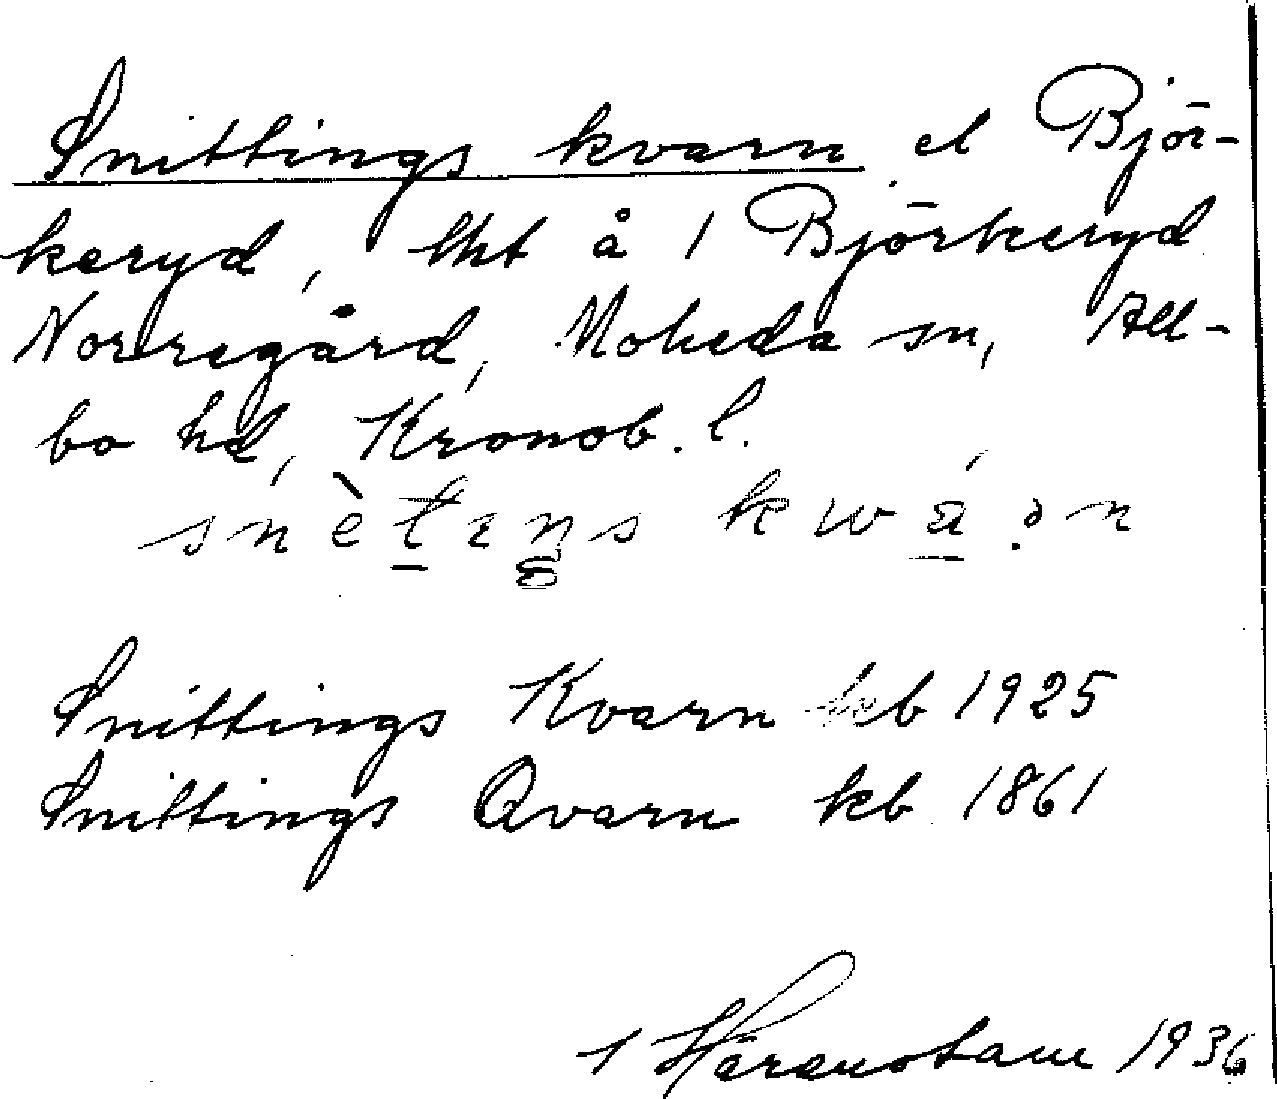 Snittings kvarn el Björ-
keryd, lht å 1 Björkeryd
Norregård, Moheda sn, All-
bo hd, Kronob. l.
snètıŋs kwá.ən
Snittings Kvarn kb 1925
Snittings Qvarn kb 1861
1936